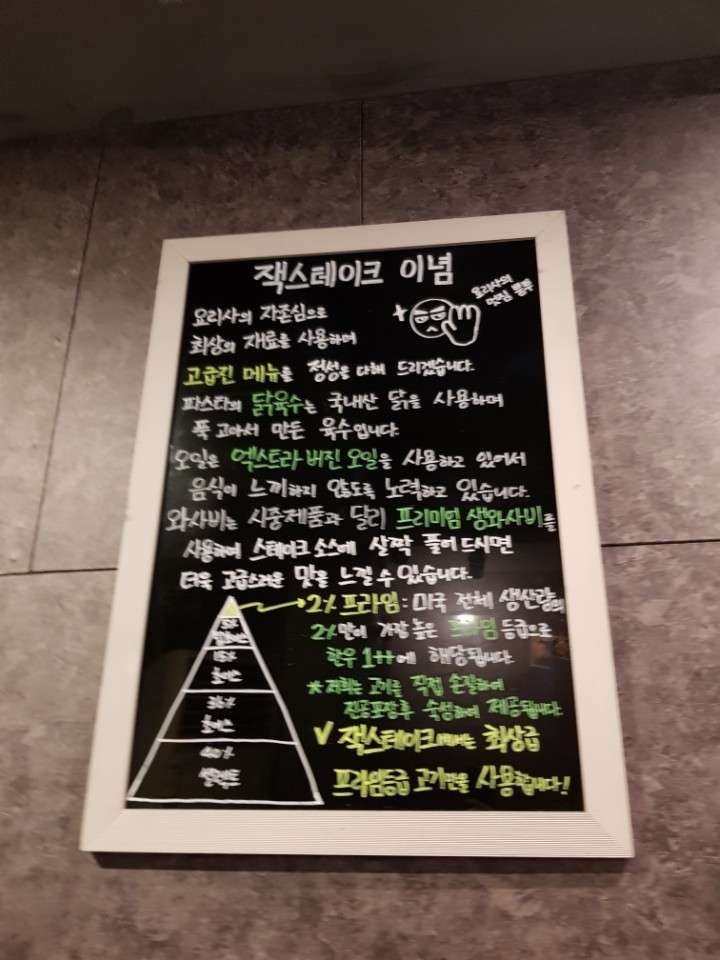 잭스테이크 이념
요리사의
멋짐 뿜뿜
요리사의 자존심으로
최상의 재료를 사용하며
고급진 메뉴를 정성을 다해 드리겠습니다.
파스타의 닭육수는 국내산 닭을 사용하며
푹 고아서 만든 육수입니다.
오일은 엑스트라 버진 오일을 사용하고 있어서
음식이 느끼하지 않도록 노력하고 있습니다.
와사비는 시중제품과 달리 프리미엄 생와사비를
사용하여 스테이크 소스에 살짝 풀어 드시면
더욱 고급스러운 맛을 느낄 수 있습니다.
→ 2% 프라임 : 미국 전체 생산량의
2%만이 가장 높은 프라임 등급으로
한우 1++에 해당됩니다.
* 저희는 고기를 직접 손질하여
진공포장후 숙성하여 제공됩니다.
✓ 잭스테이크에서는 최상급
프라임등급 고기만을 사용합니다!
5%
15%
초이스
38%
초이스
40%
셀렉트